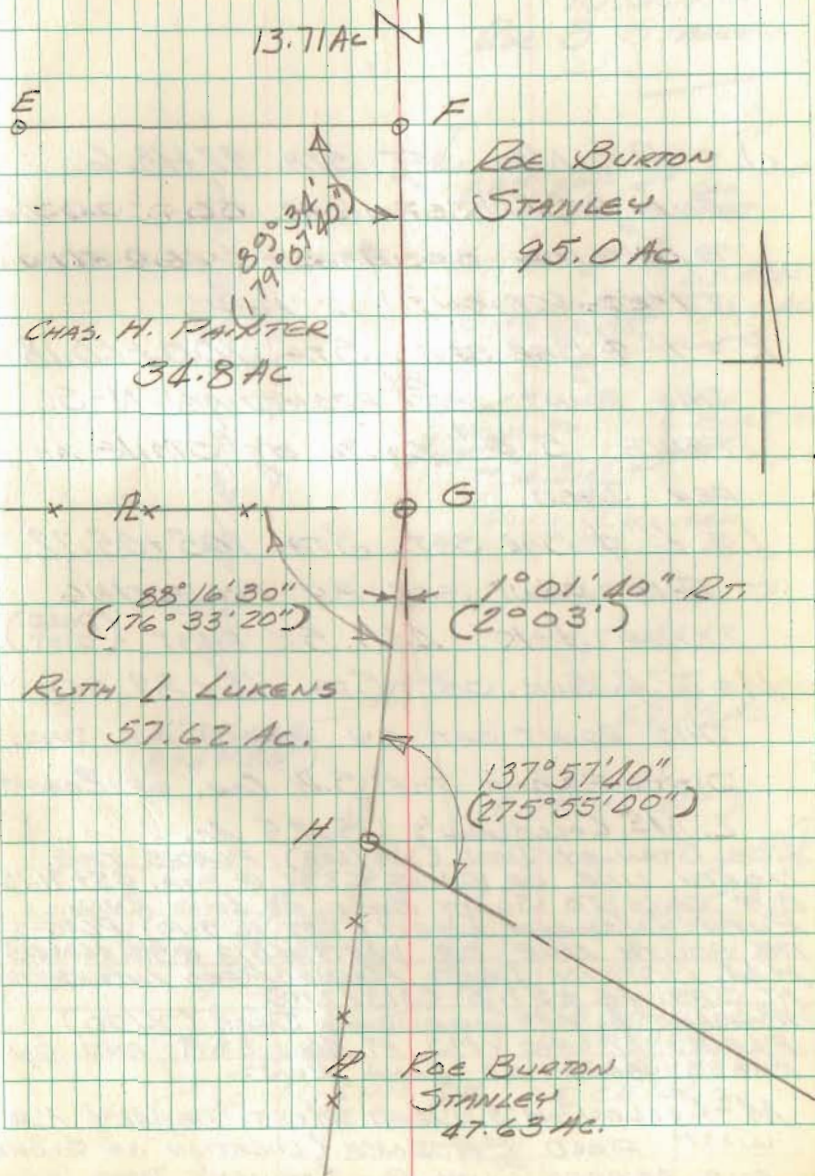 13.71 AC N
E
F
ROE BURTON
STANLEY
95.0 AC
89° 34'
(179° 07' 40")
CHAS. H. PAINTER
34.8 AC
PL
G
88° 16' 30"
(176° 33' 20")
1° 01' 40" RT.
(2° 03')
RUTH L. LUKENS
57.62 AC.
137° 57' 40"
(275° 55' 00")
H
PL ROE BURTON
STANLEY
47.63 AC.